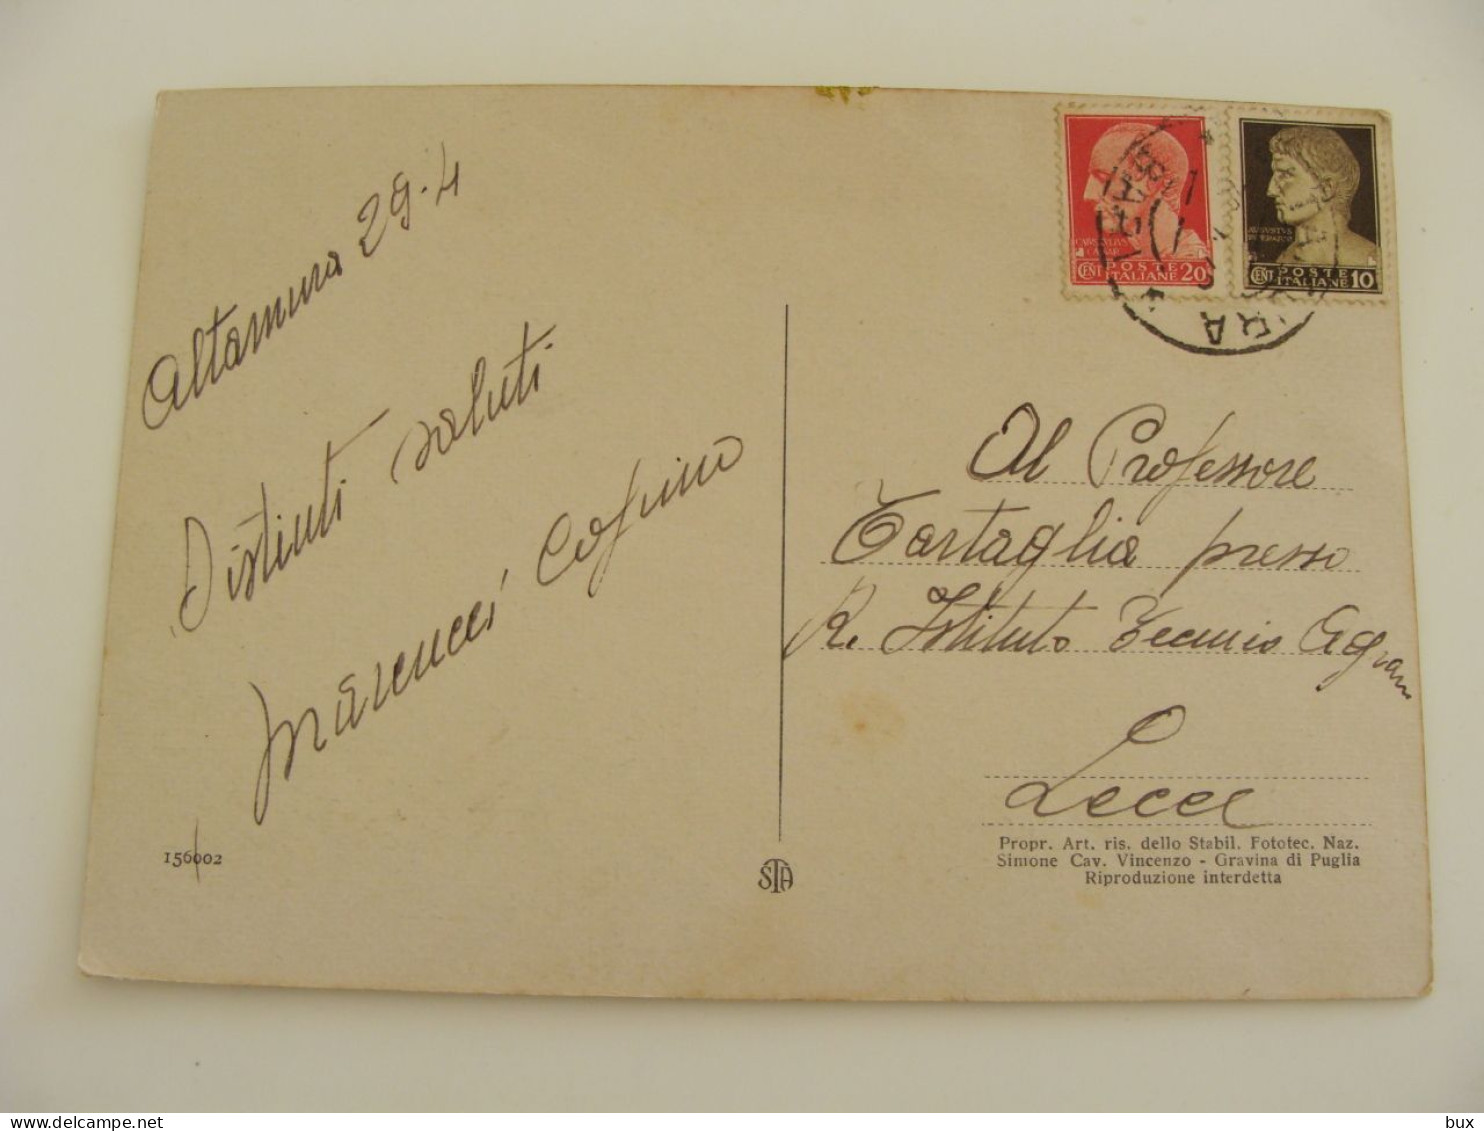 Altamura 29.4
Distinti saluti
Marcucci
156002
CENT POSTE ITALIANE 20
CENT POSTE ITALIANE 10
Al Professore
Tartaglia presso
R. Istituto Tecnico Agrar
Lecce
Propr. Art. ris. dello Stabil. Fototec. Naz.
Simone Cav. Vincenzo - Gravina di Puglia
Riproduzione interdetta
STA
bux